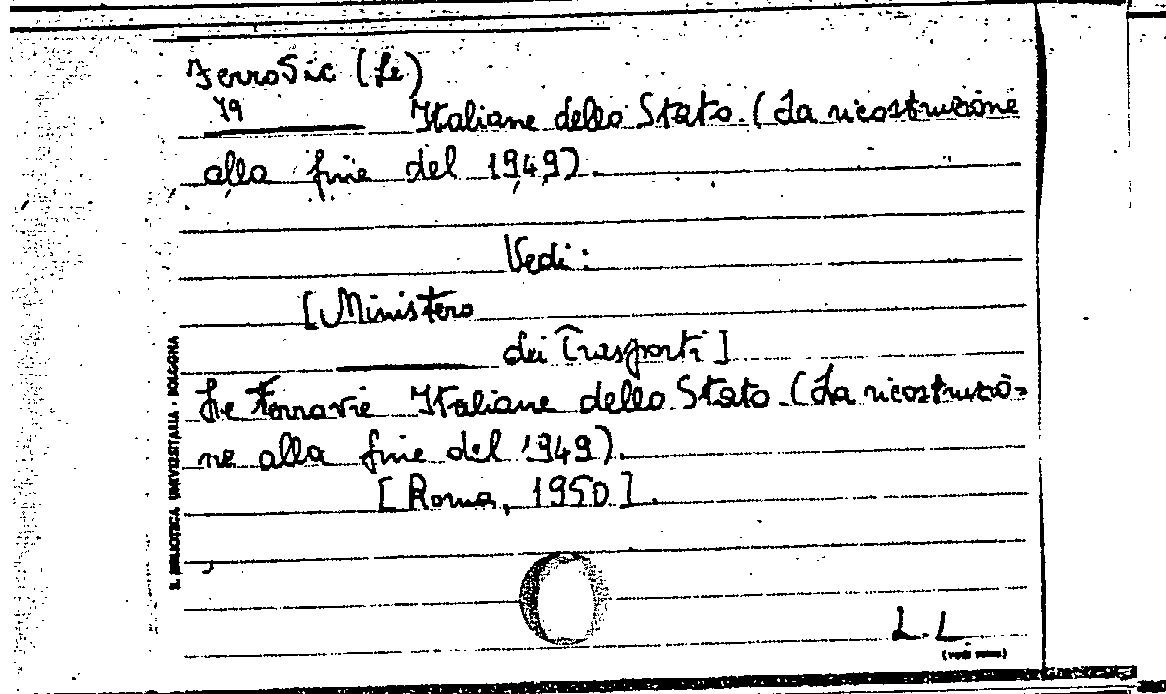 Ferrovie (Le)
79
Italiane dello Stato. (La ricostruzione
alla fine del 1949).
Vedi:
[Ministero
dei Trasporti]
Le Ferrovie Italiane dello Stato (La ricostruzio-
ne alla fine del 1949).
[Roma, 1950].
R. BIBLIOTECA UNIVERSITARIA - BOLOGNA
L. L.
(vedi verso)